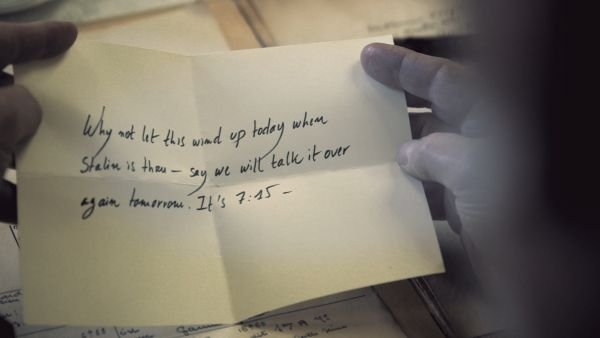 Why not let this wind up today when
Stalin is thru – say we will talk it over
again tomorrow. It's 7:15 –